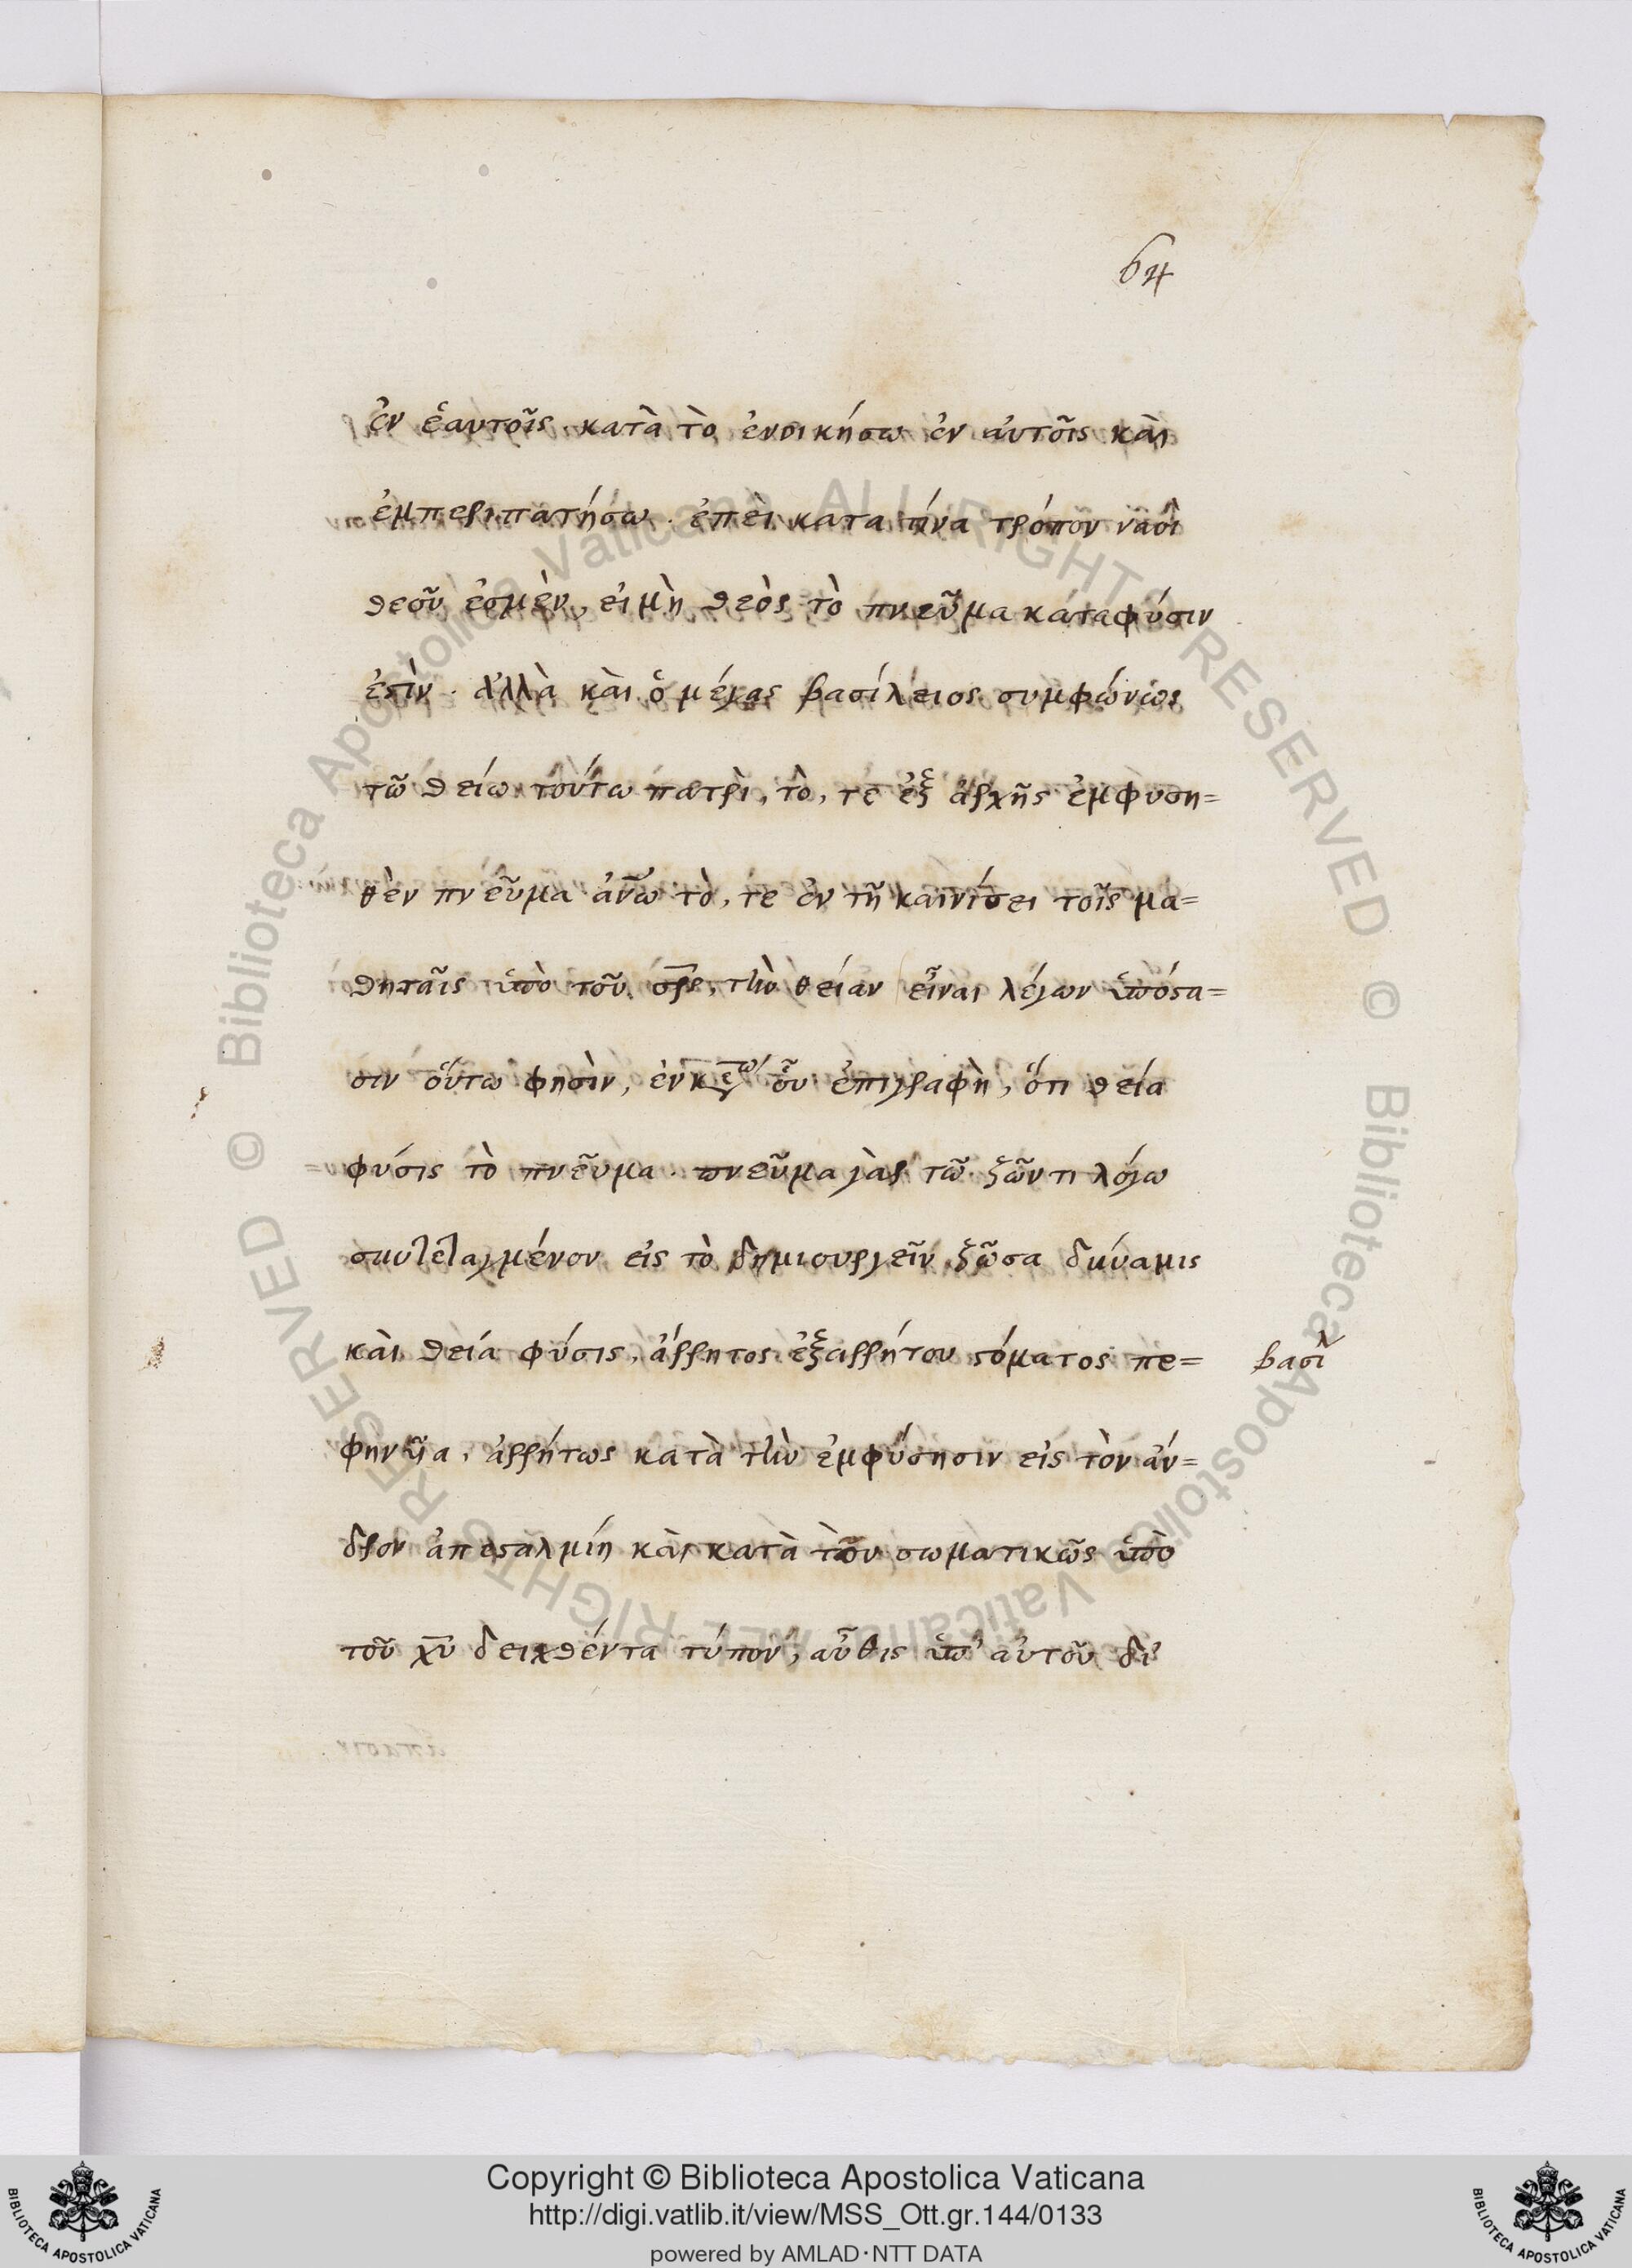 64
ἐν ἑαυτοῖς. κατὰ τὸ ἐνοικήσω ἐν αὐτοῖς καὶ
ἐμπεριπατήσω. ἐπεὶ κατα τίνα τρόπον ναοὶ
θεοῦ ἐσμὲν, εἰ μὴ θεὸς τὸ πνεῦμα κατα φύσιν
ἐστίν. ἀλλὰ καὶ ὁ μέγας βασίλειος συμφώνως
τῶ θείω τούτω πατρὶ, τὸ, τε ἐξ ἀρχῆς ἐμφυση=
θὲν πνεῦμα ἀνῶ τὸ, τε ἐν τῆ καινίσει τοῖς μα=
θηταῖς ὑπὸ τοῦ σρς, τὴν θείαν εἶναι λέγων ὑπόστα=
σιν οὕτω φησὶν, ἐν οὗ ἐπιγραφὴ, ὅτι θεία
φύσις τὸ πνεῦμα. πνεῦμα γὰρ τῶ ζῶντι λόγω
συντεταγμένον εἰς τὸ δημιουργεῖν ζῶσα δύναμις
καὶ θεία φύσις, ἄρρητος ἐξ αρρήτου στόματος πε=
βασι
φηνυῖα, ἀρρήτως κατὰ τὴν ἐμφύσησιν εἰς τὸν ἄν=
δρον ἀπεσταλμίη καὶ κατὰ τὸν σωματικῶς ὑπὸ
τοῦ χῦ δειχθέντα τύπον, αὖθις ὑπ' αὐτοῦ δι
Copyright © Biblioteca Apostolica Vaticana
http://digi.vatlib.it/view/MSS_Ott.gr.144/0133
powered by AMLAD·NTT DATA
© Biblioteca Apostolica Vaticana ALL RIGHTS RESERVED
© Biblioteca Apostolica Vaticana ALL RIGHTS RESERVED
BIBLIOTECA APOSTOLICA VATICANA
BIBLIOTECA APOSTOLICA VATICANA